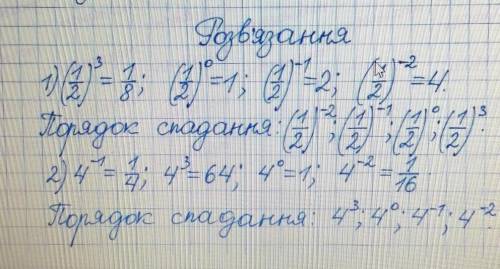 Розв'язання
1) (1/2)³ = 1/8; (1/2)⁰ = 1; (1/2)⁻¹ = 2; (1/2)⁻² = 4.
Порядок спадання: (1/2)⁻²; (1/2)⁻¹; (1/2)⁰; (1/2)³.
2) 4⁻¹ = 1/4; 4³ = 64; 4⁰ = 1; 4⁻² = 1/16.
Порядок спадання: 4³; 4⁰; 4⁻¹; 4⁻².